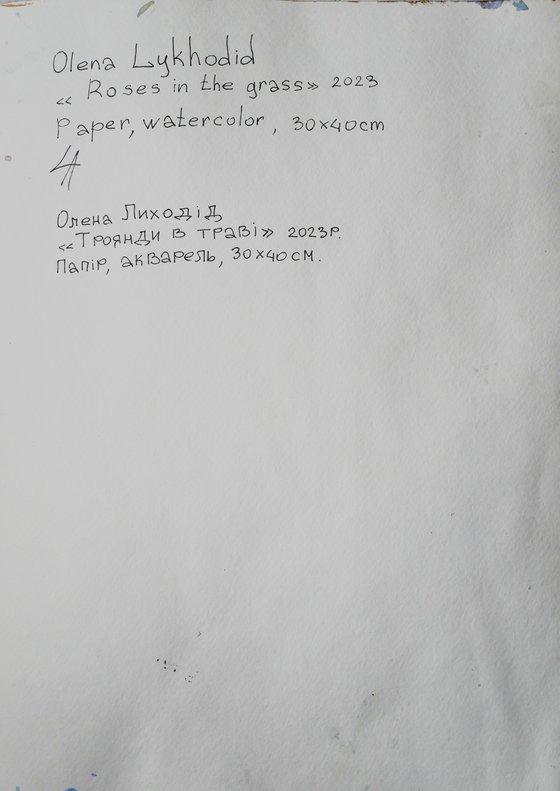 Olena Lykhodid
« Roses in the grass» 2023
Paper, watercolor, 30x40cm
Олена Лиходід
«Троянди в траві» 2023р.
Папір, акварель, 30x40см.